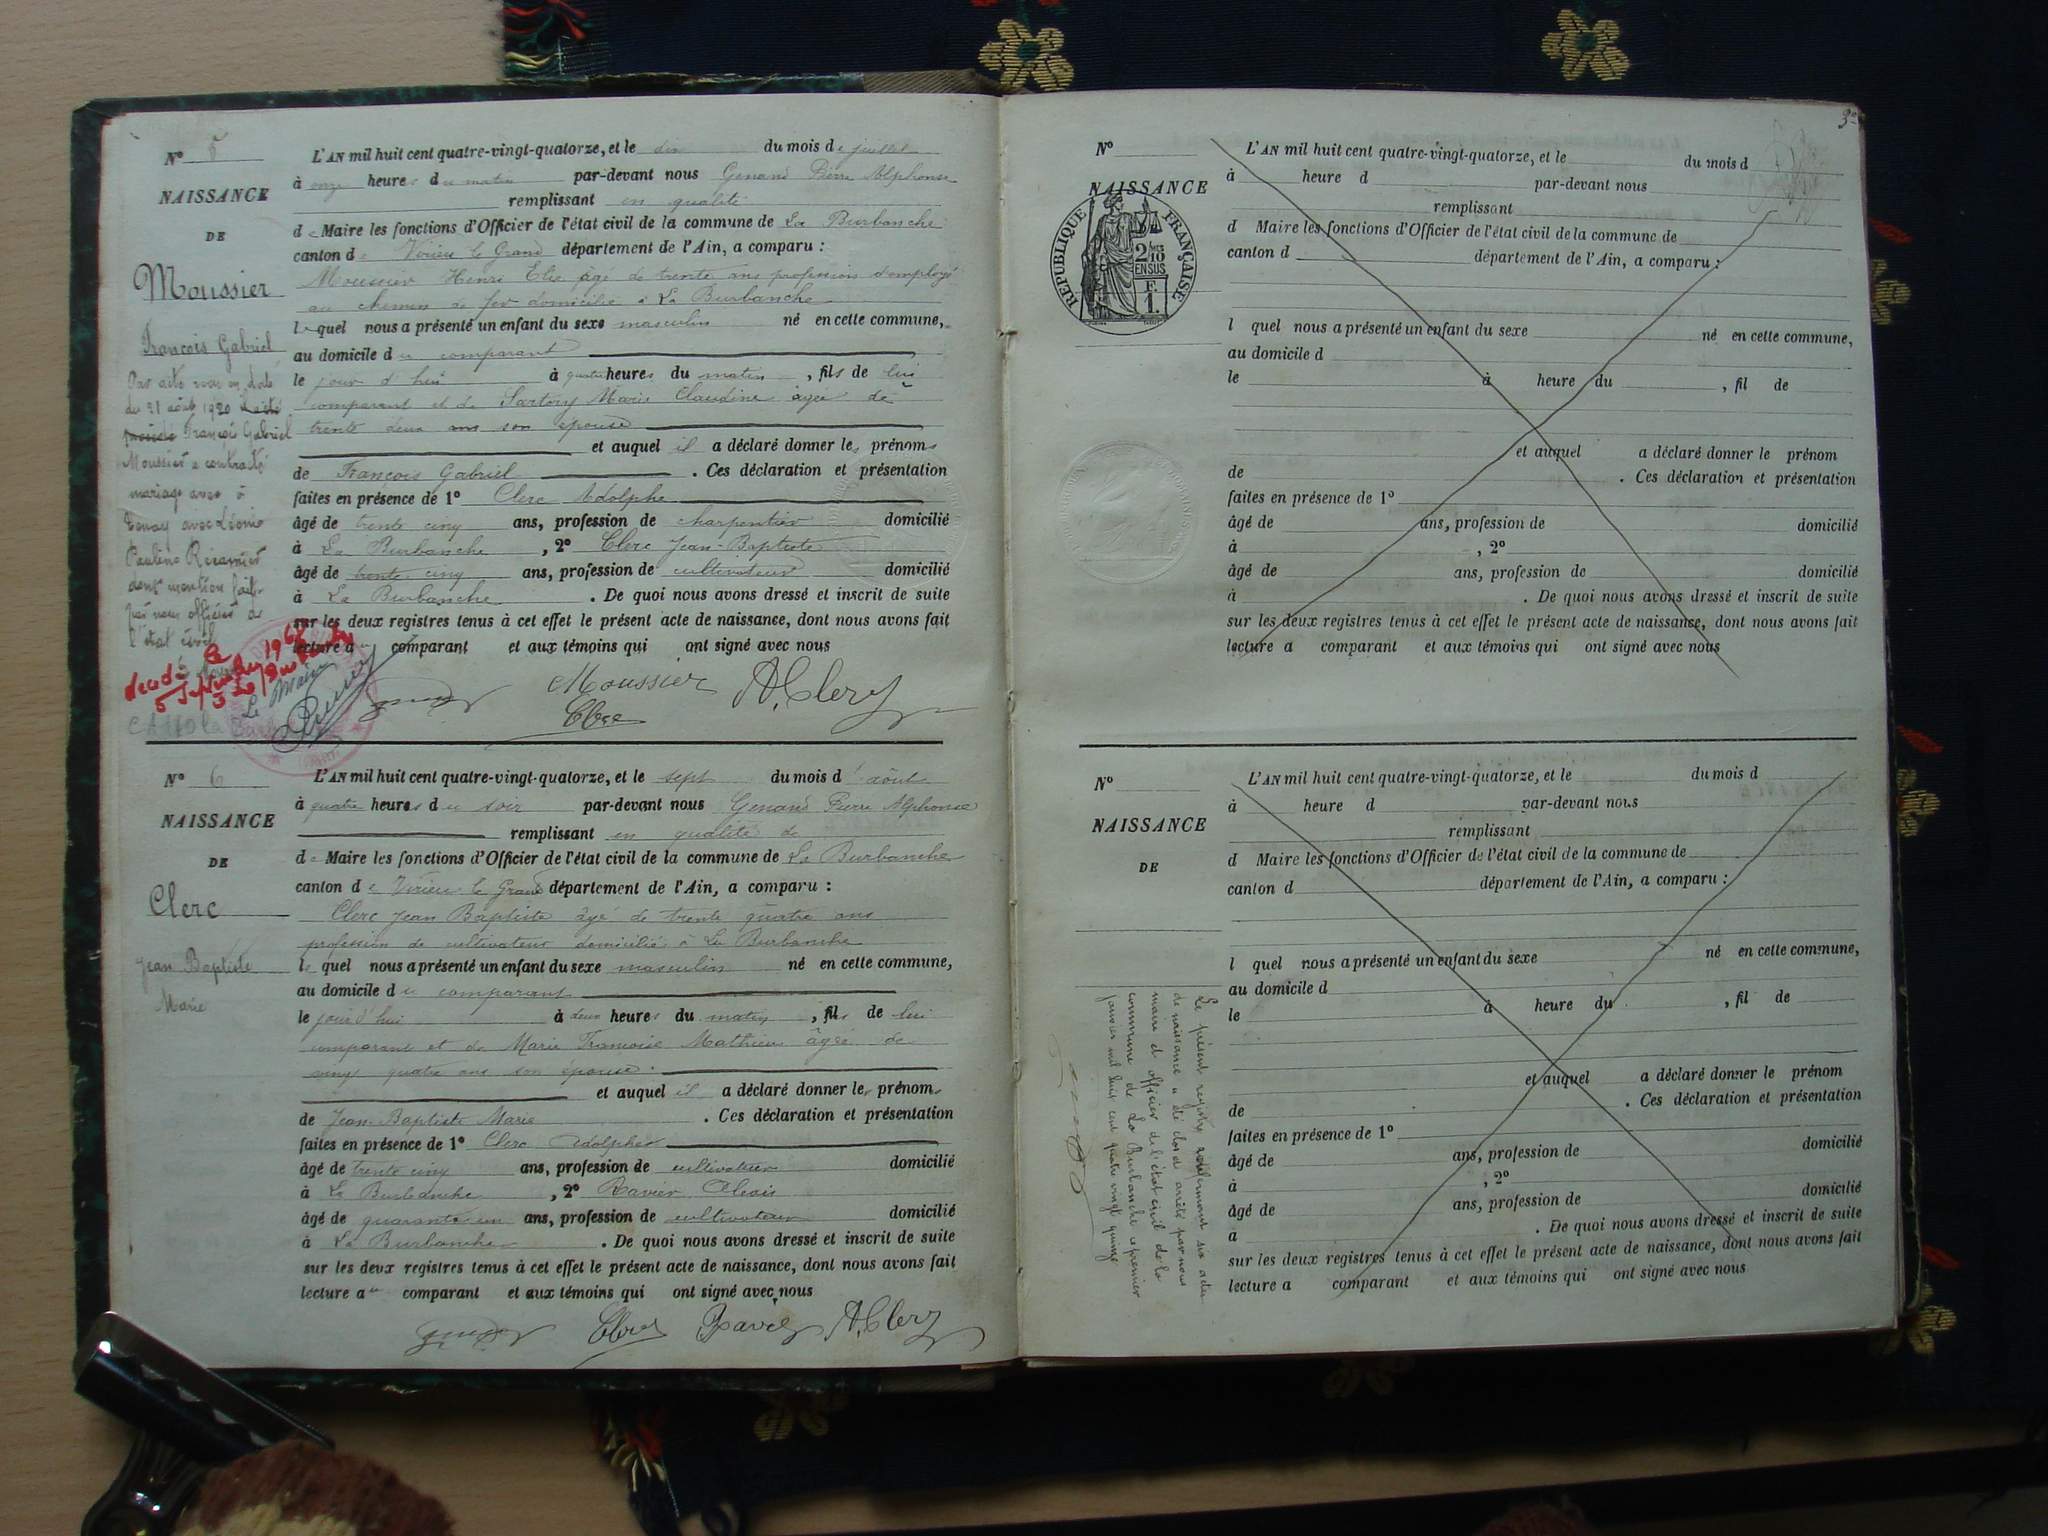 N° 5
NAISSANCE
DE
Moussier
François Gabriel
Par acte en date
du 21 août 1920
François Gabriel
Moussier a contracté
mariage avec à
Tenay avec Léonie
Pauline
dont mention faite
par nous officier de
l'état civil
décédé le
5 septembre 1968
Le Maire
L'AN mil huit cent quatre-vingt-quatorze, et le dix du mois de juillet
à onze heures du matin par-devant nous Genand Pierre Alphonse
remplissant en qualité
de Maire les fonctions d'Officier de l'état civil de la commune de La Burbanche
canton de Virieu le Grand département de l'Ain, a comparu :
Moussier Henri Elie âgé de trente ans profession d'employé
au chemin de fer domicilié à La Burbanche
lequel nous a présenté un enfant du sexe masculin né en cette commune,
au domicile du comparant
le jour d'hui à quatre heures du matin, fils de lui
comparant et de Sartory Marie Claudine âgée de
trente deux ans son épouse
et auquel il a déclaré donner les prénoms
de François Gabriel. Ces déclaration et présentation
faites en présence de 1° Clerc Adolphe
âgé de trente cinq ans, profession de charpentier domicilié
à La Burbanche, 2° Clerc Jean-Baptiste
âgé de trente cinq ans, profession de cultivateur domicilié
à La Burbanche. De quoi nous avons dressé et inscrit de suite
sur les deux registres tenus à cet effet le présent acte de naissance, dont nous avons fait
lecture au comparant et aux témoins qui ont signé avec nous
Moussier A. Clerc
Clerc
N° 6
NAISSANCE
DE
Clerc
Jean Baptiste
Marie
L'AN mil huit cent quatre-vingt-quatorze, et le sept du mois d'août
à quatre heures du soir par-devant nous Genand Pierre Alphonse
remplissant en qualité de
de Maire les fonctions d'Officier de l'état civil de la commune de La Burbanche
canton de Virieu le Grand département de l'Ain, a comparu :
Clerc Jean Baptiste âgé de trente quatre ans
profession de cultivateur domicilié à La Burbanche
lequel nous a présenté un enfant du sexe masculin né en cette commune,
au domicile du comparant
le jour d'hui à deux heures du matin, fils de lui
comparant et de Marie Françoise Mathieu âgée de
vingt quatre ans son épouse.
et auquel il a déclaré donner les prénoms
de Jean-Baptiste Marie. Ces déclaration et présentation
faites en présence de 1° Clerc Adolphe
âgé de trente cinq ans, profession de cultivateur domicilié
à La Burbanche, 2° Ravier Alexis
âgé de quarante un ans, profession de cultivateur domicilié
à La Burbanche. De quoi nous avons dressé et inscrit de suite
sur les deux registres tenus à cet effet le présent acte de naissance, dont nous avons fait
lecture au comparant et aux témoins qui ont signé avec nous
Clerc Ravier A. Clerc
N°
NAISSANCE
RÉPUBLIQUE FRANÇAISE
2/10 EN SUS
F. 1.
L'AN mil huit cent quatre-vingt-quatorze, et le du mois d
à heure d par-devant nous
remplissant
d Maire les fonctions d'Officier de l'état civil de la commune de
canton d département de l'Ain, a comparu :
l quel nous a présenté un enfant du sexe né en cette commune,
au domicile d
le à heure du , fil de
et auquel a déclaré donner le prénom
de . Ces déclaration et présentation
faites en présence de 1°
âgé de ans, profession de domicilié
à , 2°
âgé de ans, profession de domicilié
à . De quoi nous avons dressé et inscrit de suite
sur les deux registres tenus à cet effet le présent acte de naissance, dont nous avons fait
lecture a comparant et aux témoins qui ont signé avec nous
N°
NAISSANCE
DE
L'AN mil huit cent quatre-vingt-quatorze, et le du mois d
à heure d par-devant nous
remplissant
d Maire les fonctions d'Officier de l'état civil de la commune de
canton d département de l'Ain, a comparu :
l quel nous a présenté un enfant du sexe né en cette commune,
au domicile d
le à heure du , fil de
et auquel a déclaré donner le prénom
de . Ces déclaration et présentation
faites en présence de 1°
âgé de ans, profession de domicilié
à , 2°
âgé de ans, profession de domicilié
à . De quoi nous avons dressé et inscrit de suite
sur les deux registres tenus à cet effet le présent acte de naissance, dont nous avons fait
lecture a comparant et aux témoins qui ont signé avec nous
Le présent registre renfermant six actes
de naissance a été clos et arrêté par nous
maire et officier de l'état civil de la
commune de La Burbanche le premier
janvier mil huit cent quatre vingt quinze